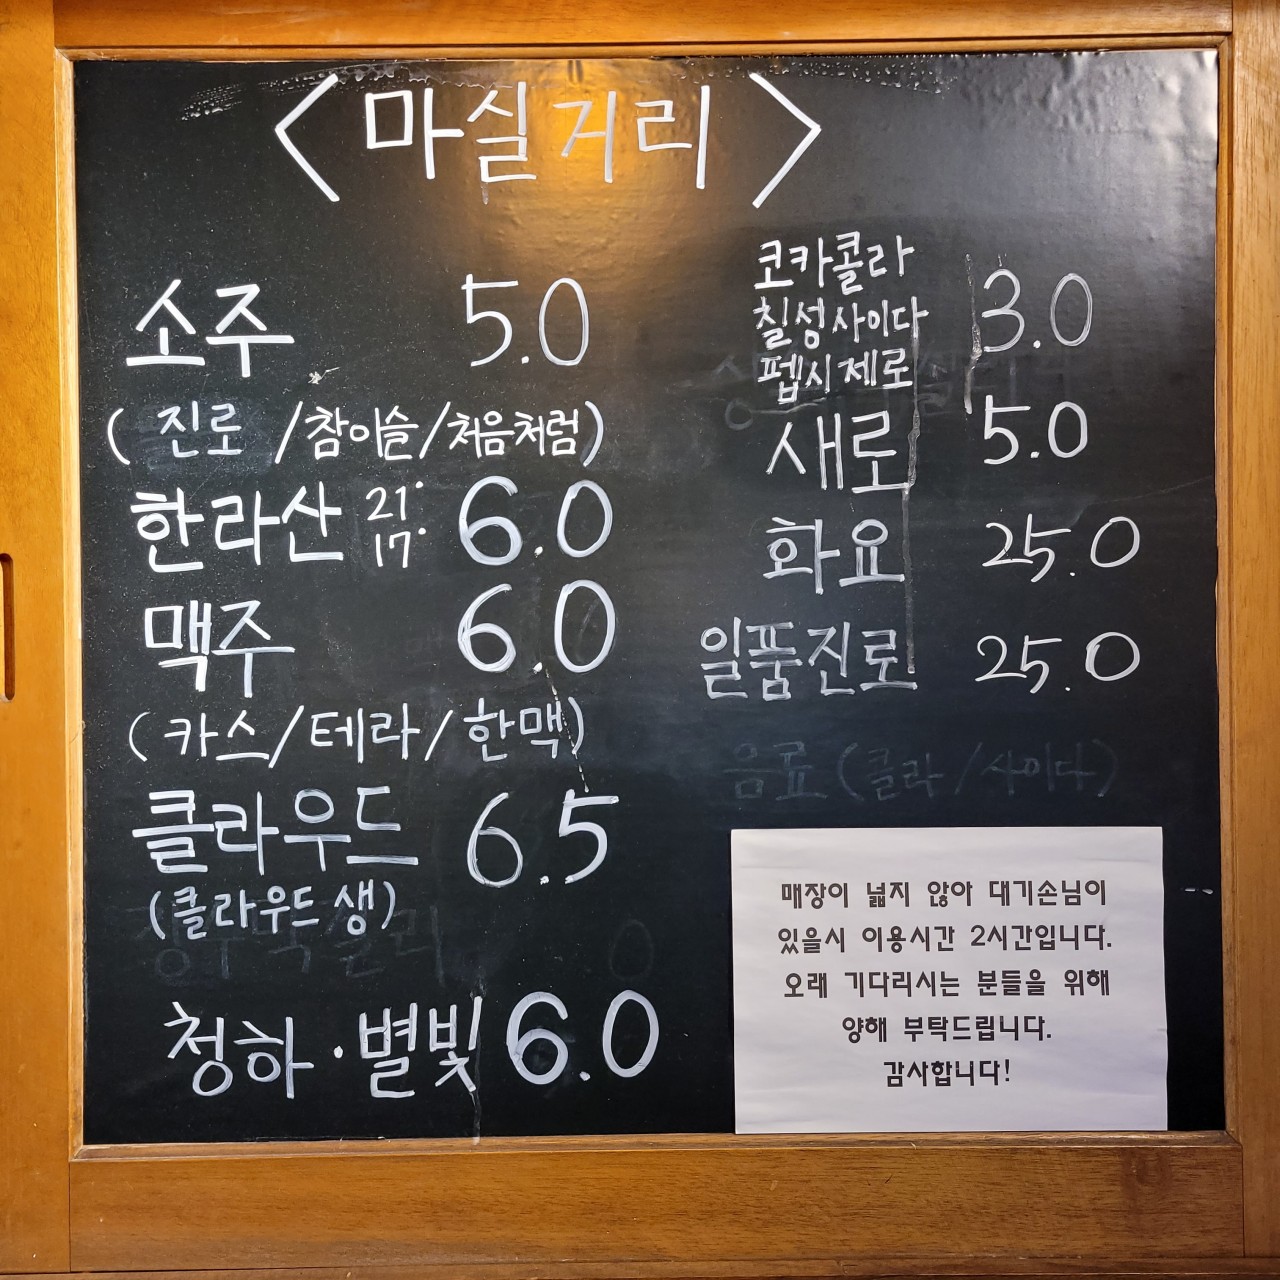 <마실거리>
소주 5.0
(진로/참이슬/처음처럼)
한라산 21° 17° 6.0
맥주 6.0
(카스/테라/한맥)
클라우드 6.5
(클라우드 생)
청하·별빛 6.0
코카콜라
칠성사이다 3.0
펩시제로
새로 5.0
화요 25.0
일품진로 25.0
음료(콜라/사이다)
매장이 넓지 않아 대기손님이
있을시 이용시간 2시간입니다.
오래 기다리시는 분들을 위해
양해 부탁드립니다.
감사합니다!